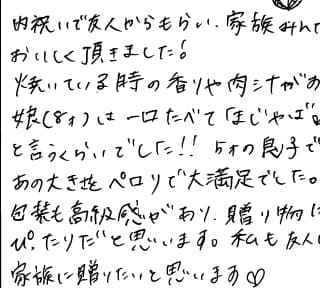 内祝いで友人からもらい、家族みんて
おいしく頂きました!
焼いている時の香りや肉シナがお
娘(8才)は一口たべて「まじやば
と言うくらいでした!! 5才の息子で
あの大きさをペロリで大満足でした。
包装も高級感があり、贈り物に
ぴったりだと思います。私も友人
家族に贈りたいと思います♡